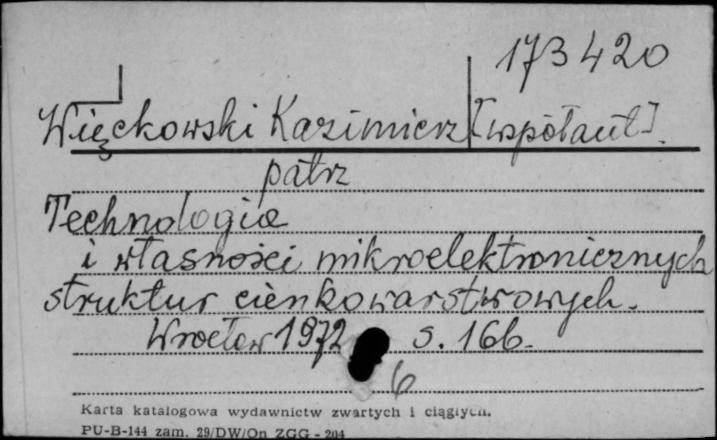 173420
Więckowski Kazimierz [współaut].
patrz
Technologia
i własności mikroelektronicznych
struktur cienkowarstwowych.
Wrocław 1972 s. 166.
6
Karta katalogowa wydawnictw zwartych i ciągłych.
PU-B-144 zam. 29/DW/On ZGG - 204